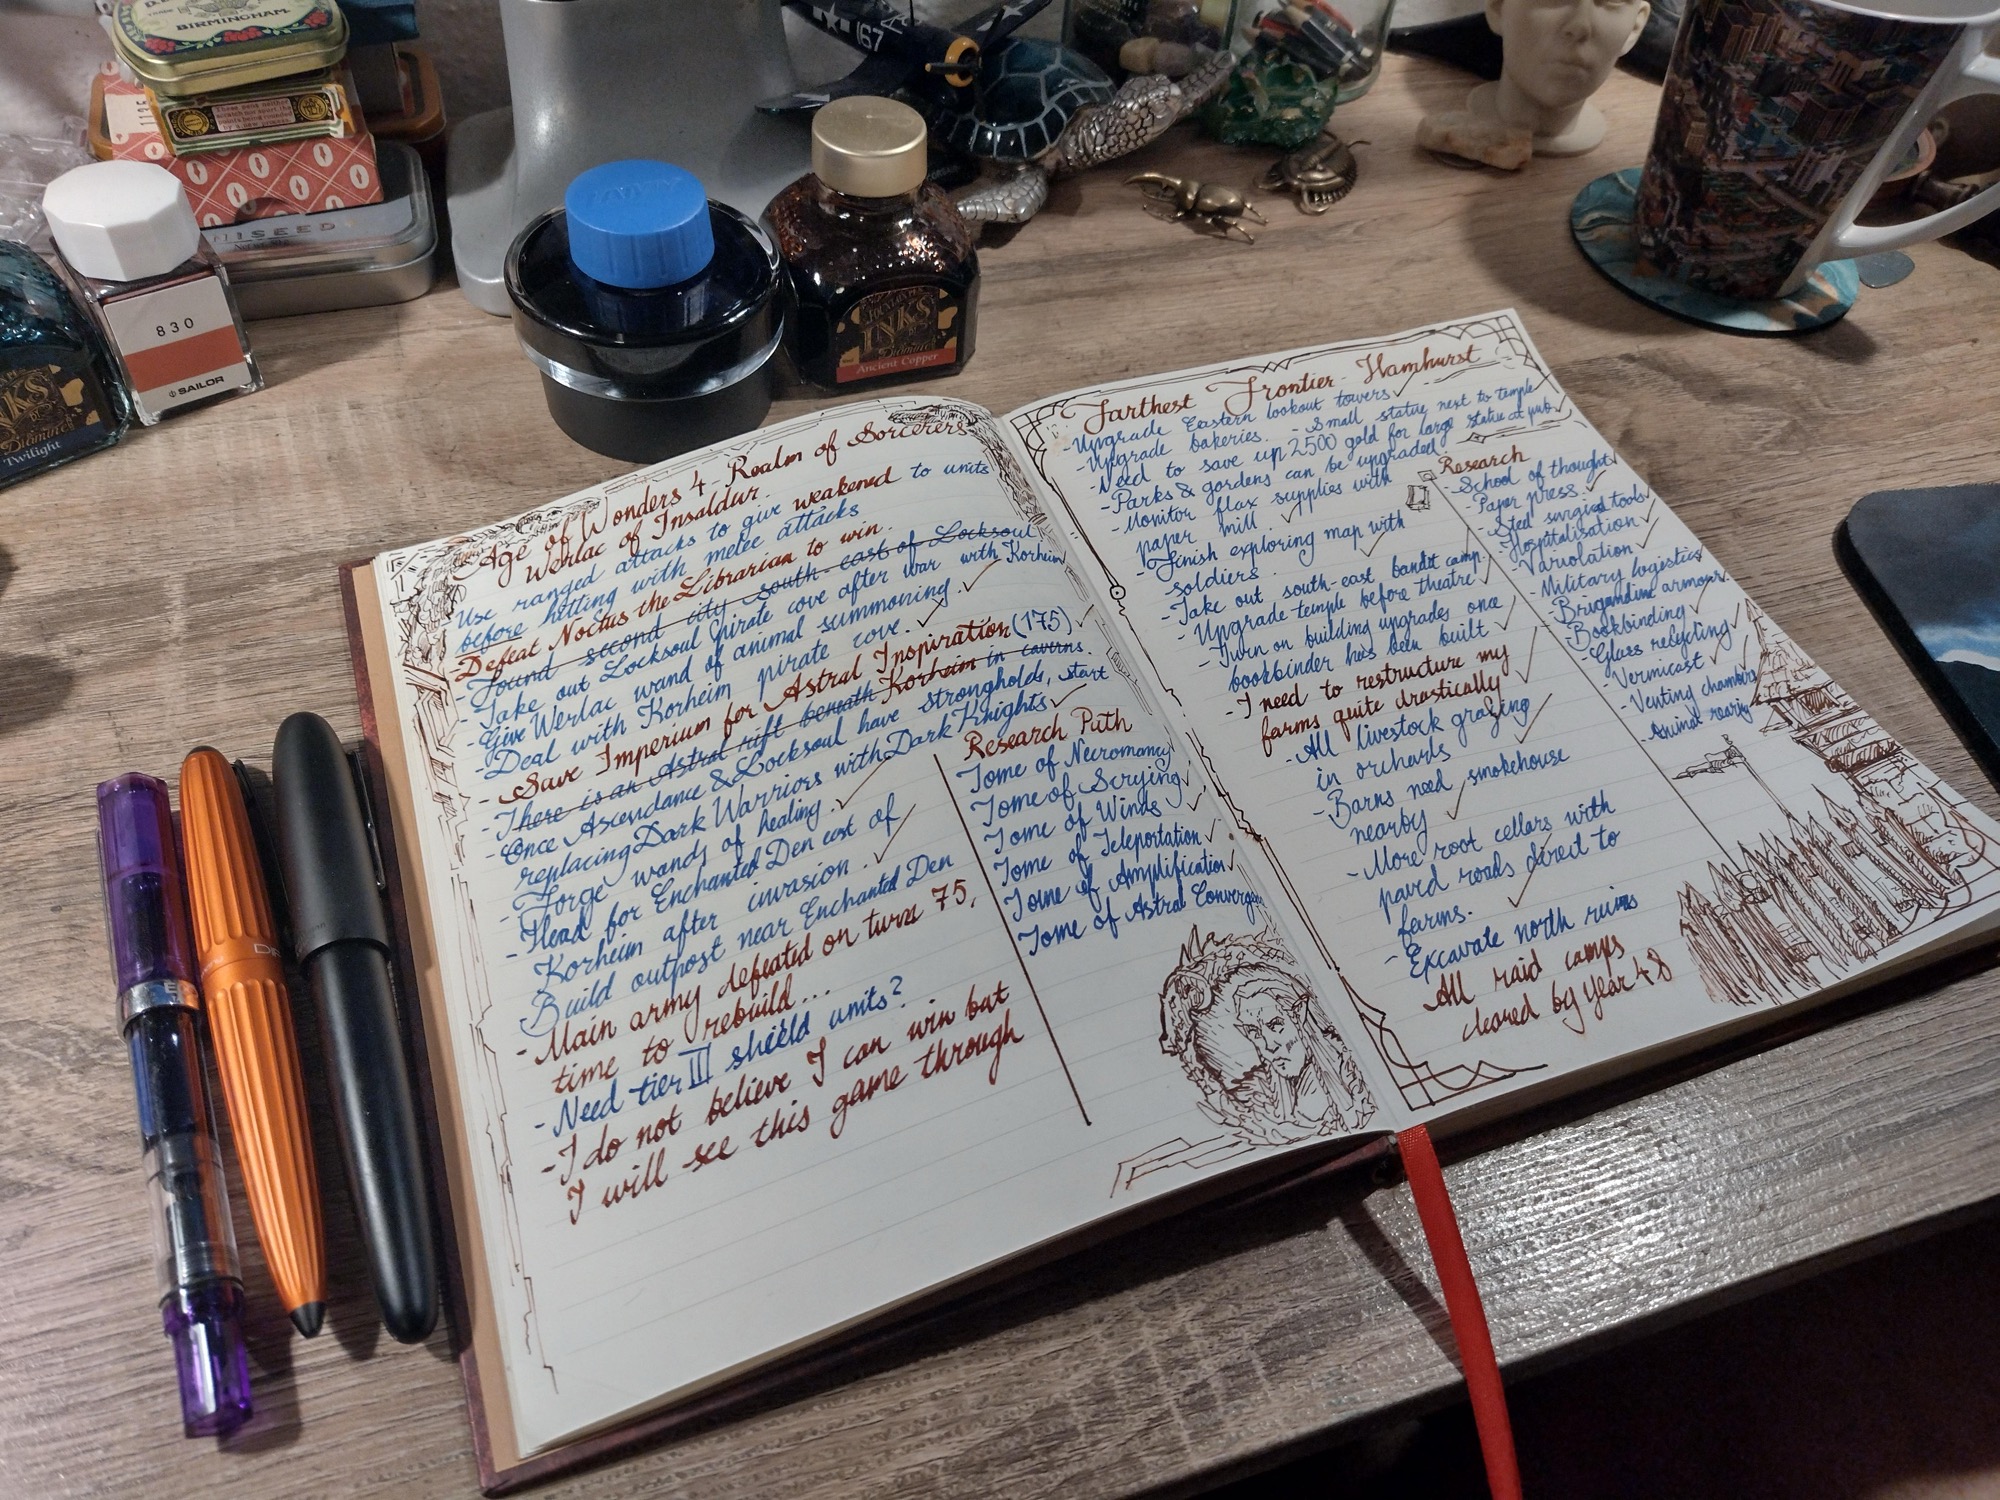 BIRMINGHAM.
1195
NISEED
830
SAILOR
INKS
Diamine
Twilight
LAMY
167
INKS
Diamine
Ancient Copper
Age of Wonders 4 - Realm of Sorcerers
Werlac of Insaldur.
Use ranged attacks to give weakened to units
before hitting with melee attacks
Defeat Noctus the Librarian to win.
- Found second city south-east of Locksoul
- Take out Locksoul pirate cove after war with Korheim
- Give Werlac wand of animal summoning. ✓
- Deal with Korheim pirate cove. ✓
- Save Imperium for Astral Inspiration (175) ✓
- There is an Astral rift beneath Korheim in caverns.
- Once Ascendance & Locksoul have strongholds, start
replacing Dark Warriors with Dark Knights ✓
- Forge wands of healing. ✓
- Head for Enchanted Den east of
Korheim after invasion. ✓
- Build outpost near Enchanted Den
- Main army defeated on turn 75,
time to rebuild...
- Need tier III shield units?
- I do not believe I can win but
I will see this game through
Research Path
Tome of Necromancy
Tome of Scrying ✓
Tome of Winds ✓
Tome of Teleportation ✓
Tome of Amplification ✓
Tome of Astral
Farthest Frontier - Hamhurst
- Upgrade Eastern lookout towers ✓
- Upgrade bakeries. - Small statue next to temple
- Need to save up 2500 gold for large statue at pub
- Parks & gardens can be upgraded
- Monitor flax supplies with
paper mill ✓
- Finish exploring map with
soldiers ✓
- Take out south-east bandit camp.
- Upgrade temple before theatre ✓
- Turn on building upgrades once
bookbinder has been built ✓
- I need to restructure my
farms quite drastically ✓
- All livestock grazing
in orchards ✓
- Barns need smokehouse
nearby ✓
- More root cellars with
paved roads direct to
farms. ✓
- Excavate north ruins
All raid camps
cleared by year 48
Research
- School of thought ✓
- Paper press ✓
- Steel surgical tools ✓
- Hospitalisation ✓
- Variolation ✓
- Military logistics ✓
- Brigandine armour ✓
- Bookbinding ✓
- Glass recycling ✓
- Vermicast ✓
- Venting chambers
- Animal rearing